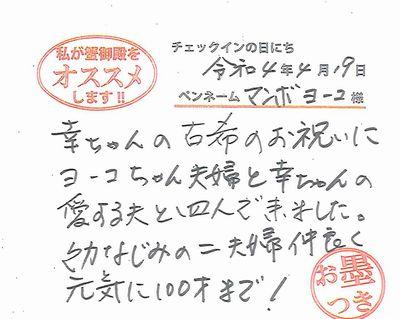 私が蟹御殿を
オススメ
します!!
チェックインの日にち
令和4年4月19日
ペンネーム マンボヨーコ様
幸ちゃんの古希のお祝いに
ヨーコちゃん夫婦と幸ちゃんの
愛する夫と四人で来ました。
幼なじみの二夫婦仲良く
元気に100才まで!
お墨
つき